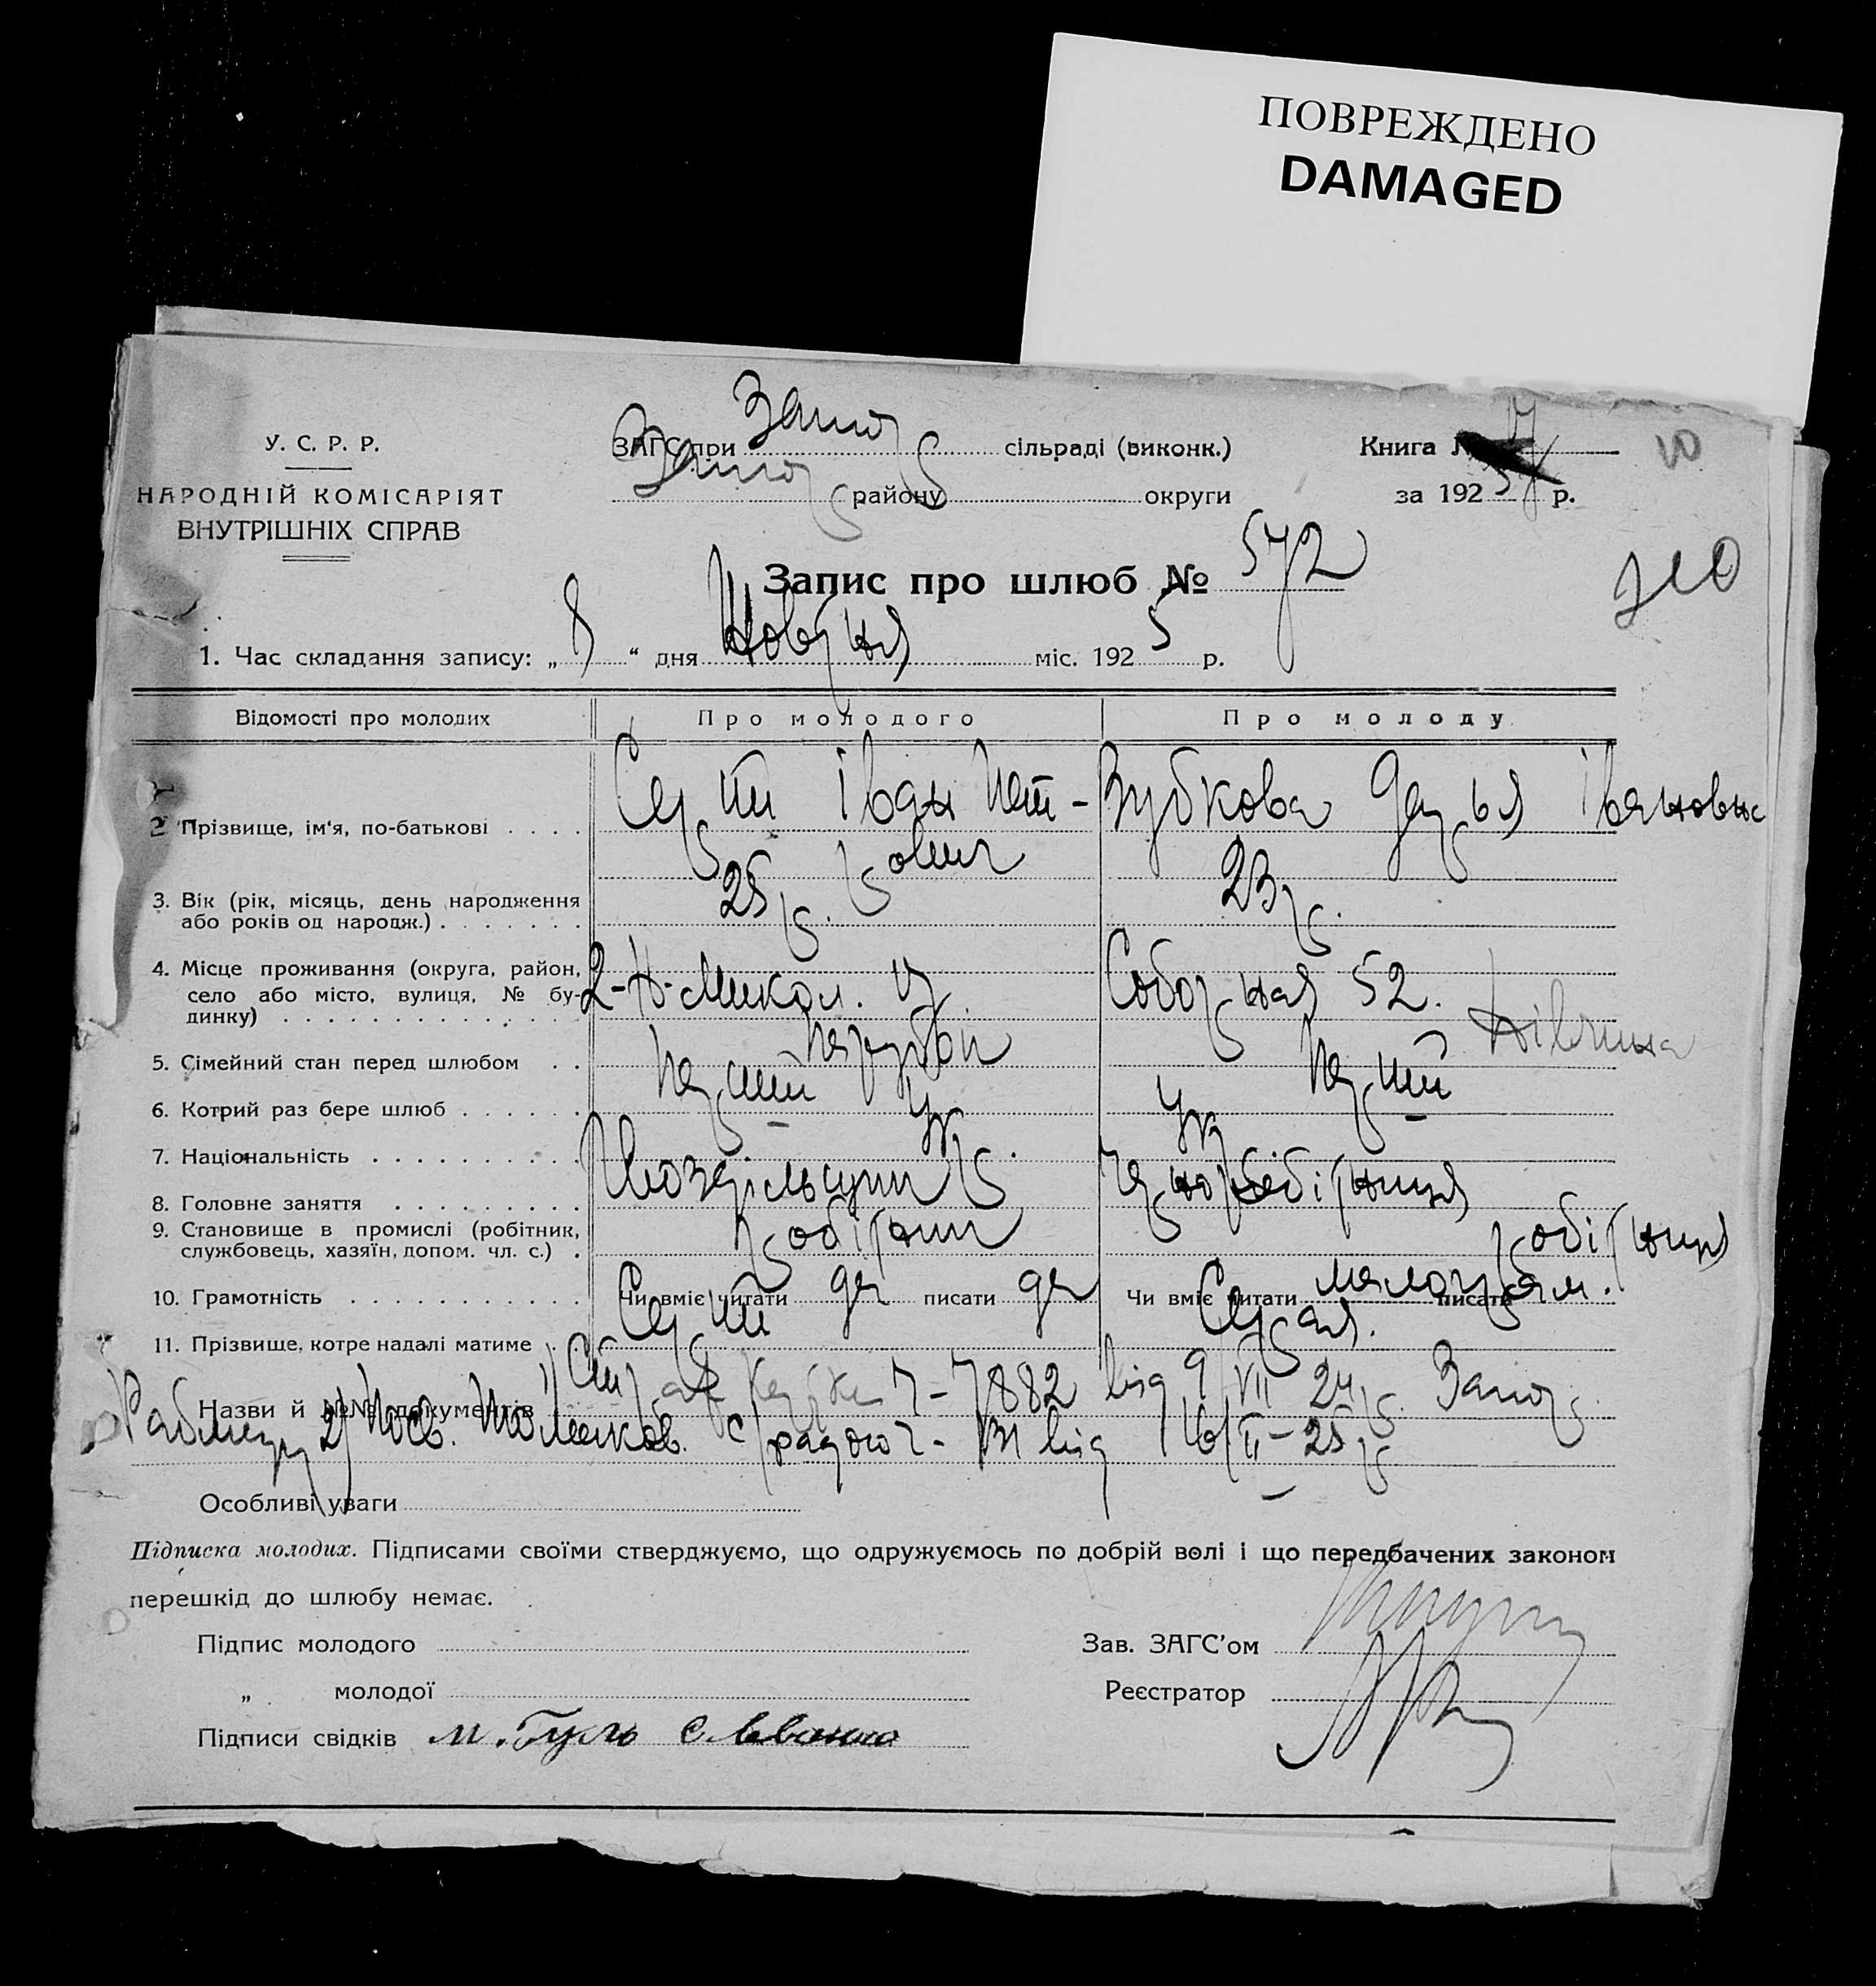 ПОВРЕЖДЕНО
DAMAGED
У. С. Р. Р.
НАРОДНІЙ КОМІСАРІЯТ
ВНУТРІШНІХ СПРАВ
ЗАГС при Запор сільраді (виконк.)
Запор району округи
Книга №
за 1925 р.
10
Запис про шлюб № 572
1. Час складання запису: „8“ дня Жовтня міс. 1925 р.
Відомості про молодих Про молодого Про молоду
2. Прізвище, ім'я, по-батькові Сірий Іван Пет-рович Зубкова Дар'я Івановна
3. Вік (рік, місяць, день народження або років од народж.) 25 р. 23 р.
4. Місце проживання (округа, район, село або місто, вулиця, № будинку) 2-Н-Микол. 17 Соборная 52.
5. Сімейний стан перед шлюбом парубок дівчина
6. Котрий раз бере шлюб перший перший
7. Національність Укр. Укр
8. Головне заняття чорноробітниця
9. Становище в промислі (робітник, службовець, хазяїн, допом. чл. с.) робітник робітниця
10. Грамотність Чи вміє читати да писати да Чи вміє читати малограм. писати
11. Прізвище, котре надалі матиме Сірий Сірая.
Назви й №№ документів 7882 від 9/VII 24 р. Запор.
2) Посв. с/радою від 16/II-25 р
Особливі уваги
Підписка молодих. Підписами своїми стверджуємо, що одружуємось по добрій волі і що передбачених законом
перешкід до шлюбу немає.
Підпис молодого Зав. ЗАГС'ом
„ молодої Реєстратор
Підписи свідків М. Гуль